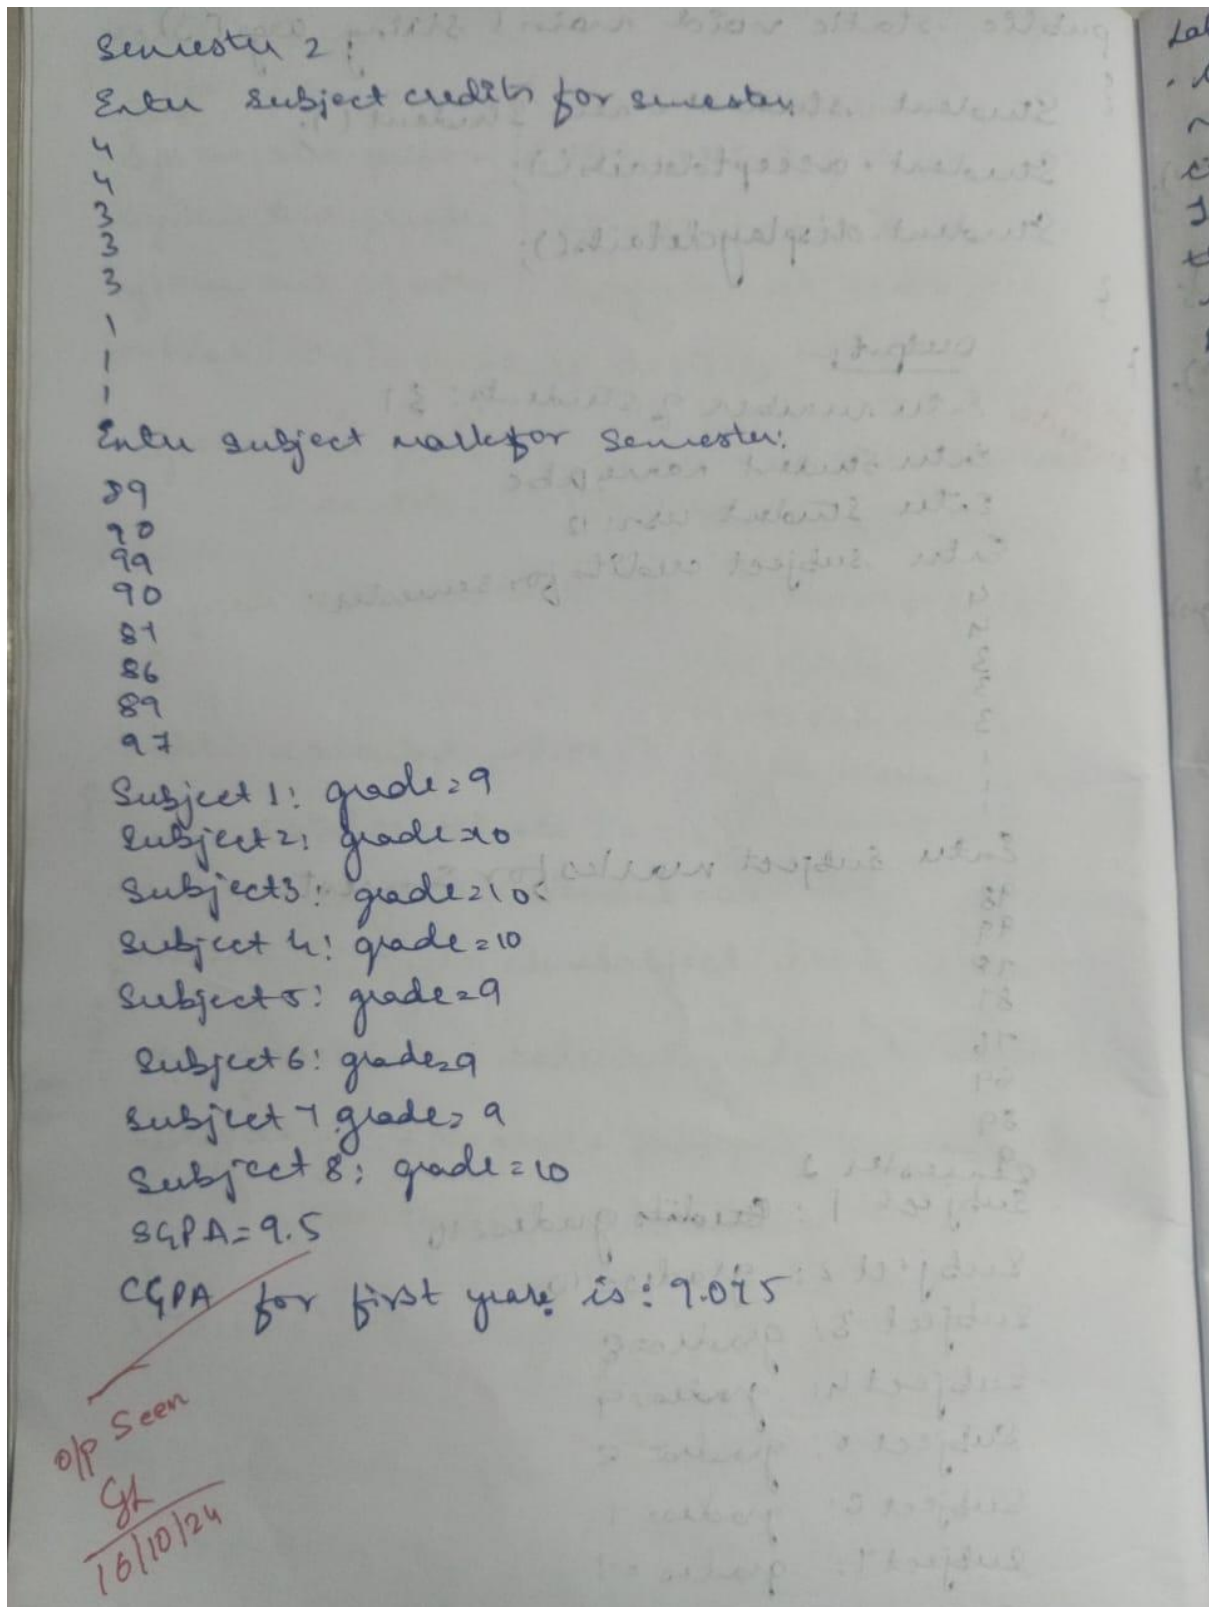 Semester 2:
Enter subject credits for semester:
4
4
3
3
3
1
1
1
Enter subject marks for Semester:
89
90
99
90
81
86
89
97
Subject 1: grade=9
Subject 2: grade=10
Subject3: grade=10:
Subject 4: grade=10
Subject5: grade=9
Subject6: grade=9
Subject 7 grade=9
Subject 8: grade=10
SGPA=9.5
CGPA for first year is: 9.075
o/p Seen
16/10/24